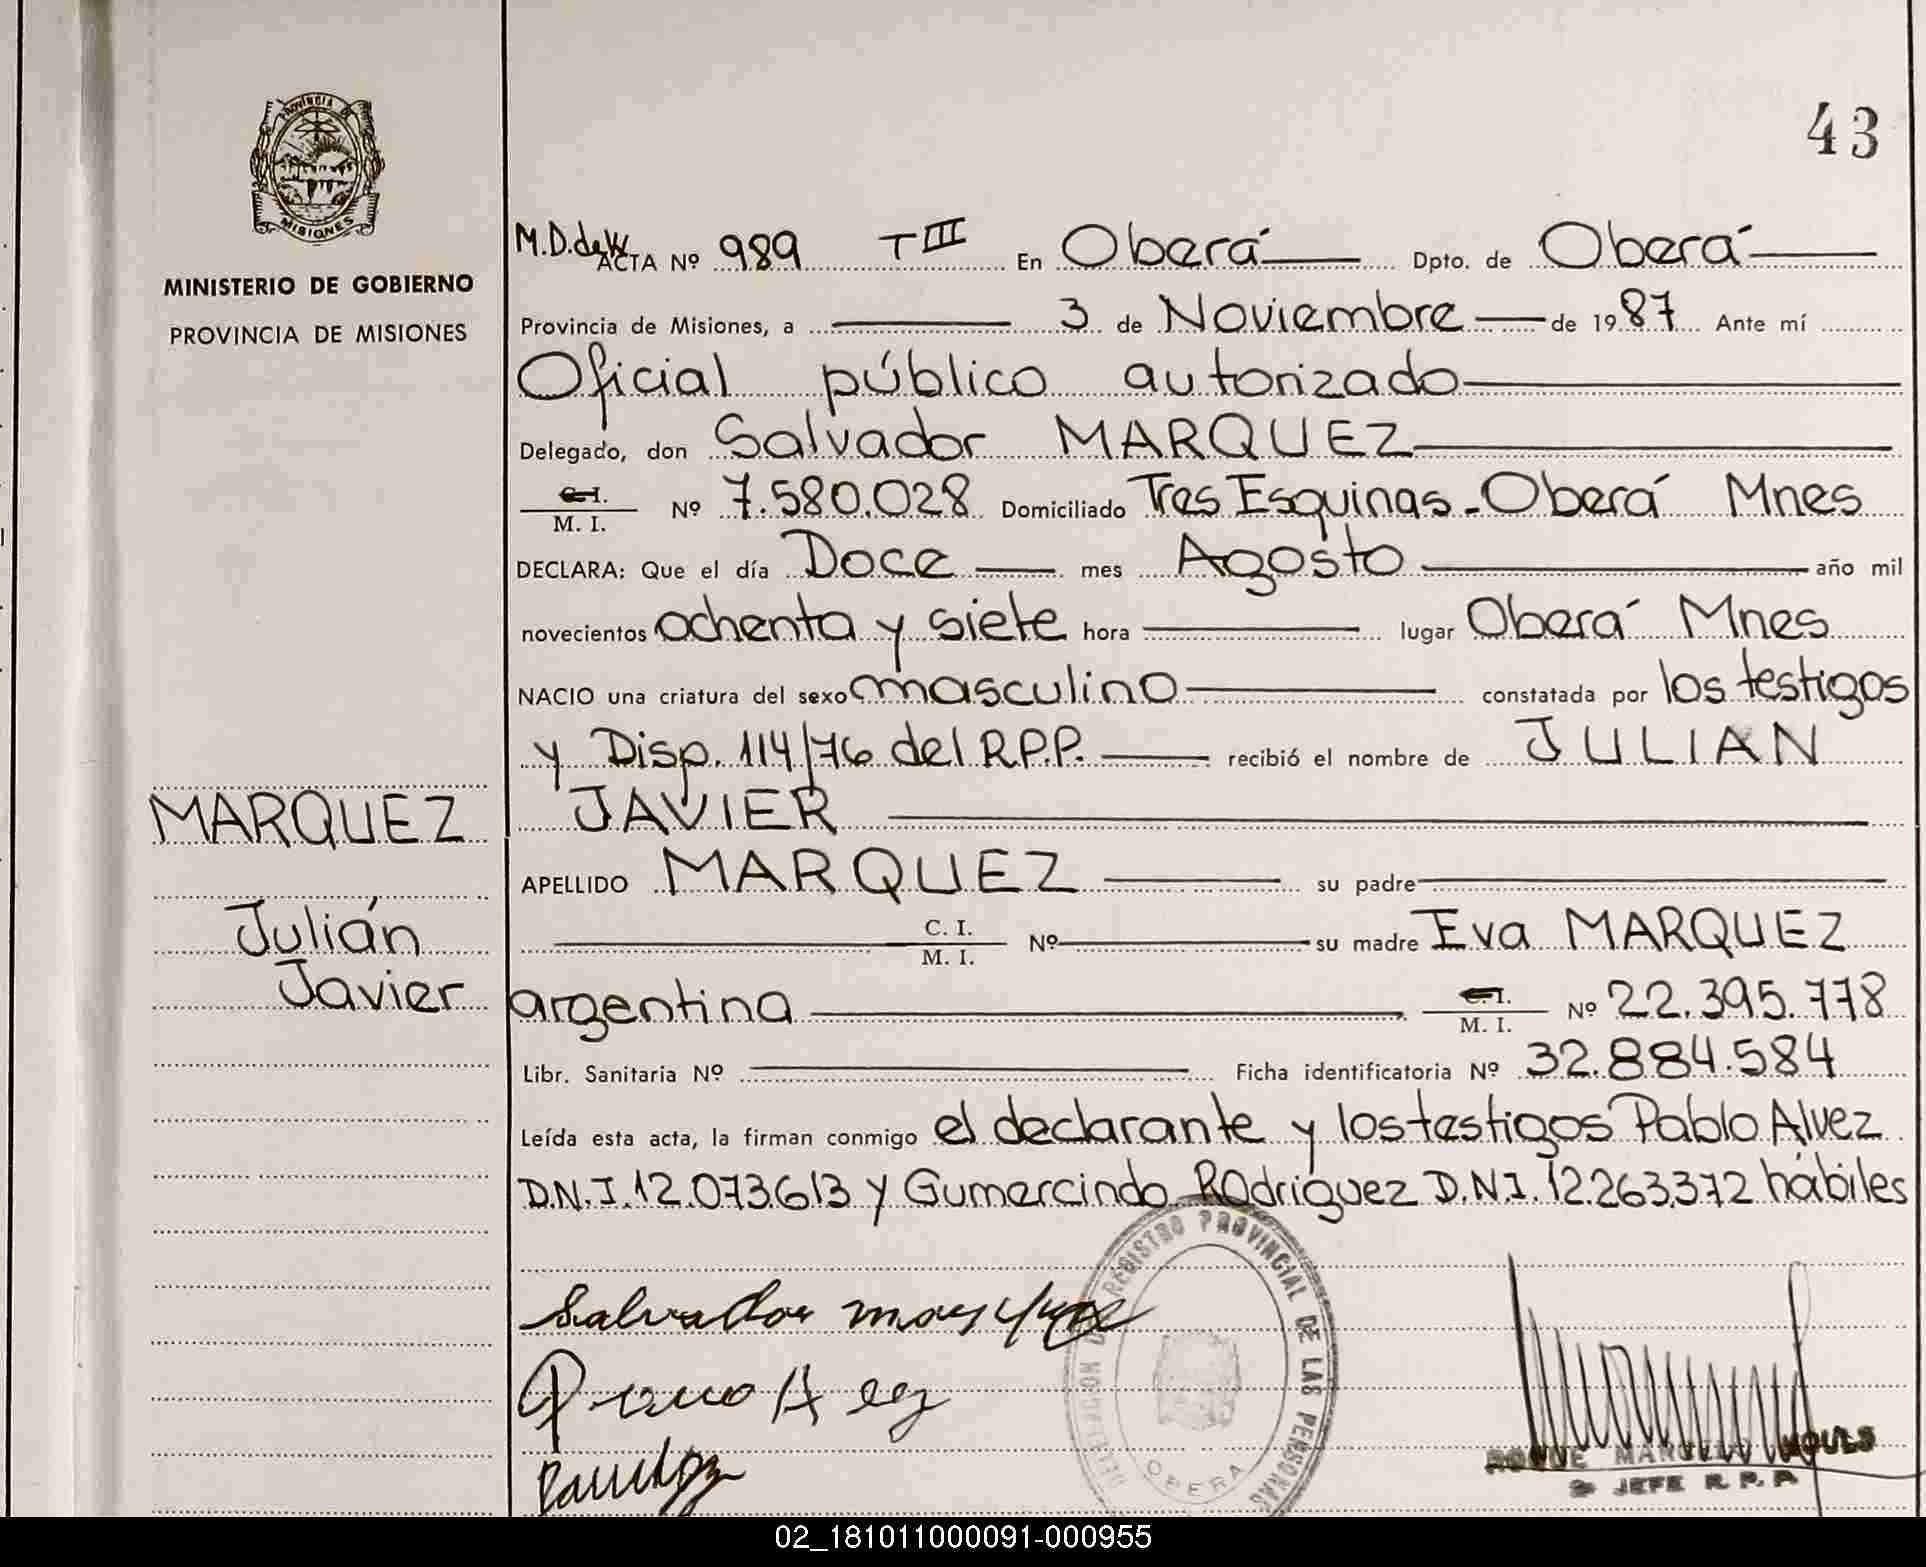 43
PROVINCIA DE
MISIONES
MINISTERIO DE GOBIERNO
PROVINCIA DE MISIONES
M.D.deW ACTA Nº 989 T III En Oberá Dpto. de Oberá
Provincia de Misiones, a 3 de Noviembre de 1987 Ante mí
Oficial público autorizado
Delegado, don Salvador MARQUEZ
C.I. M. I. Nº 7.580.028 Domiciliado Tres Esquinas - Oberá Mnes
DECLARA: Que el día Doce mes Agosto año mil
novecientos ochenta y siete hora lugar Oberá Mnes
NACIO una criatura del sexo masculino constatada por los testigos
y Disp. 114/76 del R.P.P. recibió el nombre de JULIAN
JAVIER
MARQUEZ
APELLIDO MARQUEZ su padre
Julián
C. I. M. I. Nº su madre Eva MARQUEZ
Javier
argentina C.I. M. I. Nº 22.395.778
Libr. Sanitaria Nº Ficha identificatoria Nº 32.884.584
Leída esta acta, la firman conmigo el declarante y los testigos Pablo Alvez
D.N.I. 12.073.613 y Gumercindo Rodriguez D.N.I. 12.263.372 hábiles
DELEGACION DEL REGISTRO PROVINCIAL DE LAS PERSONAS
OBERA
Salvador
ROQUE
2º JEFE R. P. P.
02_181011000091-000955